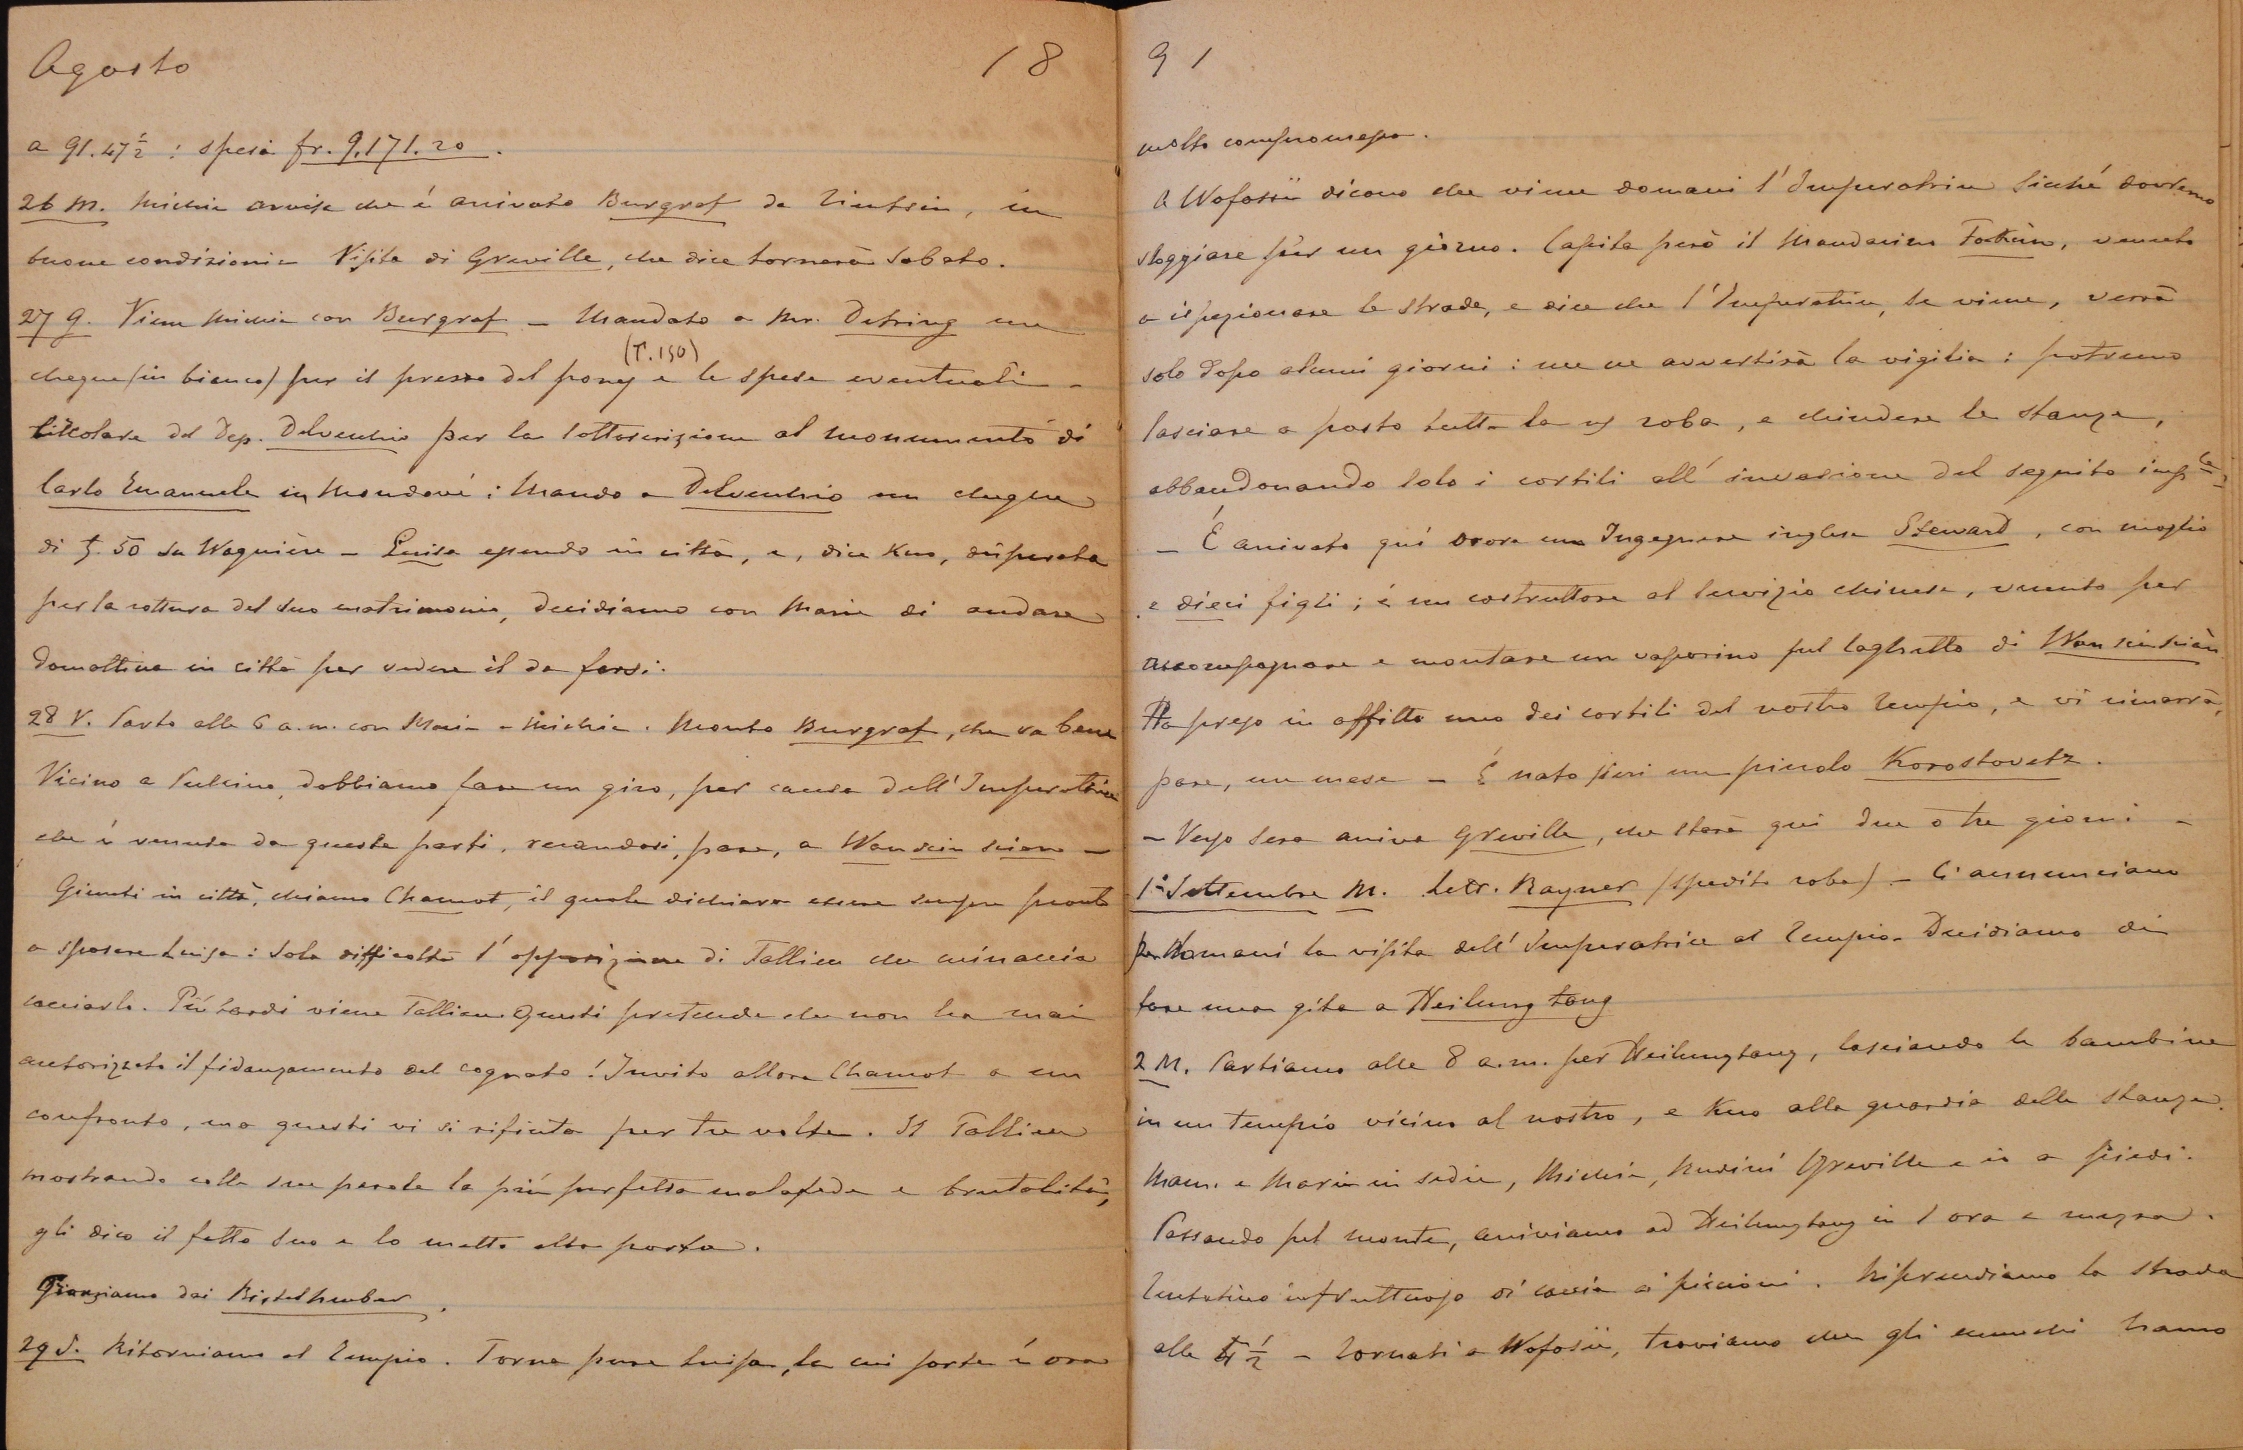 Agosto 18
a 91.47½ : spesa fr. 9.171.20.
26 M. Michie avvisa che è arrivato Burgraf da Tientsin, in
buone condizioni – Visita di Greville, che dice tornerà Sabato.
27 G. Viene Michie con Burgraf – Mandato a Mr. Detring un
(T. 150)
cheque (in bianco) per il prezzo del poney e le spese eventuali –
Circolare del Dep. Delvecchio per la sottoscrizione al monumento di
Carlo Emanuele in Mondovì : Mando a Delvecchio un cheque
di f. 50 su Wagnière – Luisa essendo in città, e, dice Kuo, disperata
per la rottura del suo matrimonio, decidiamo con Marie di andare
domattina in città per vedere il da farsi.
28 V. Parto alle 6 a.m. con Marie e Michie. Monto Burgraf, che va bene
Vicino a dobbiamo fare un giro, per causa dell'Imperatrice
che è venuta da queste parti, recandosi, pare, a Wan sciu scian –
Giunti in città, chiamo Chamot, il quale dichiara essere sempre pronto
a sposare Luisa : sola difficoltà l'opposizione di Tallieu che minaccia
cacciarlo. Più tardi viene Tallieu. Questi pretende che non ha mai
autorizzato il fidanzamento del cognato! Invito allora Chamot a un
confronto, ma questi vi si rifiuta per tre volte. Il Tallieu
mostrando colle sue parole la più perfetta malafede e brutalità,
gli dico il fatto suo e lo metto alla porta.
Pranziamo dai Ristelhueber.
29 S. Ritorniamo al Tempio. Torna pure Luisa, la cui sorte è ora
91
molto compromessa.
A Wofossü dicono che viene domani l'Imperatrice sicché dovremo
sloggiare per un giorno. Capita però il Mandarino venuto
a ispezionare le strade, e dice che l'Imperatrice, se viene, verrà
solo dopo alcuni giorni : me ne avvertirà la vigilia : potremo
lasciare a posto tutta la ns roba, e chiudere le stanze,
abbandonando solo i cortili all'invasione del seguito imp.le
– È arrivato qui ora un Ingegnere inglese Steward, con moglie
e dieci figli ; è un costruttore al servizio chinese, venuto per
accompagnare e montare un vaporino sul laghetto di Wan sciu sciàn.
Ha preso in affitto uno dei cortili del nostro tempio, e vi rimarrà,
pare, un mese – È nato jeri un piccolo Korostovetz.
– Verso sera arriva Greville, che starà qui due o tre giorni –
1º Settembre M. Lettr. Rayner (spedite robe) – Ci annunciano
per domani la visita dell'Imperatrice al Tempio. Decidiamo di
fare una gita a Heilungtang
2 M. Partiamo alle 8 a.m. per Heilungtang, lasciando le bambine
in un tempio vicino al nostro, e Kuo alla guardia delle stanze.
Mam. e Marie in sedie, Michie, Rudini Greville e io a piedi.
Passando pel monte, arriviamo ad Heilungtang in 1 ora e mezza.
Tentativo infruttuoso di caccia ai piccioni. Riprendiamo la strada
alle 4½ – Tornati a Wofosü, troviamo che gli eunuchi hanno